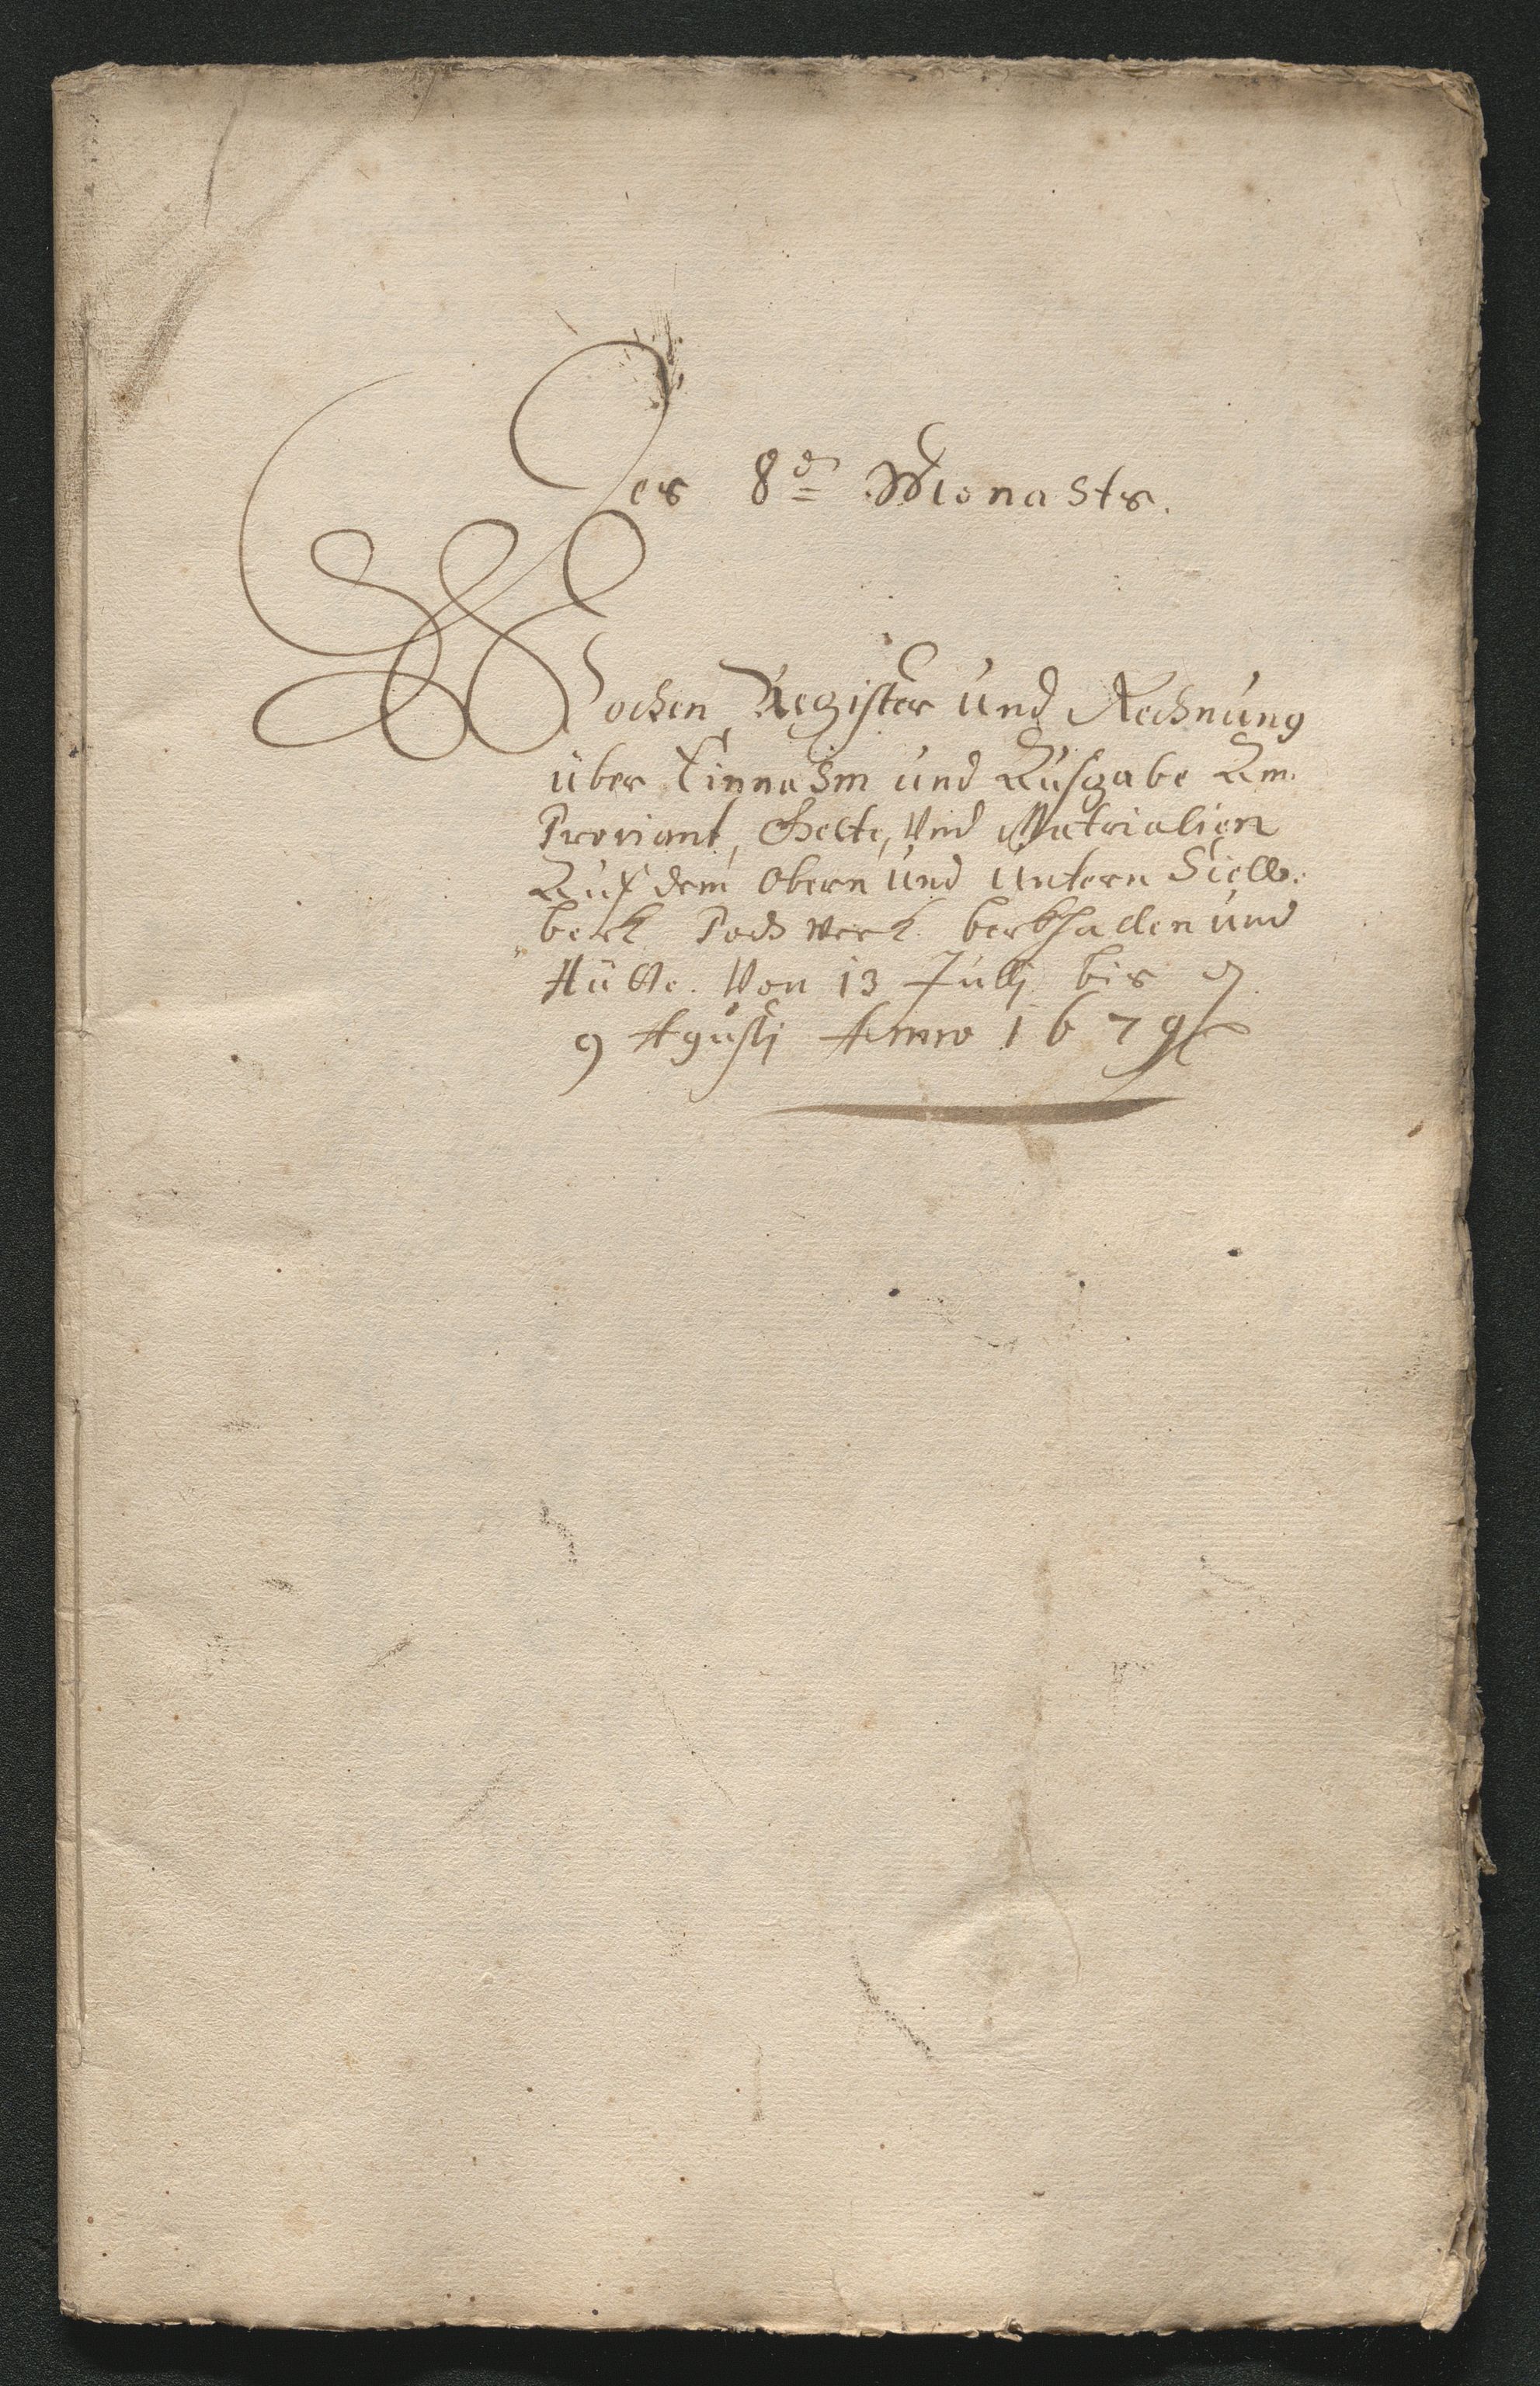 Des 8den Monasts.
Wochen Register und Rechnung
über Einnahm und Ausgabe An
Proviant, Gelte, Und Matrialien
Auf dem Obern und Untern
berk Poch werk berkhallen und
Hütte. Von 13 Julij bis d
9 Agustj Anno 1679